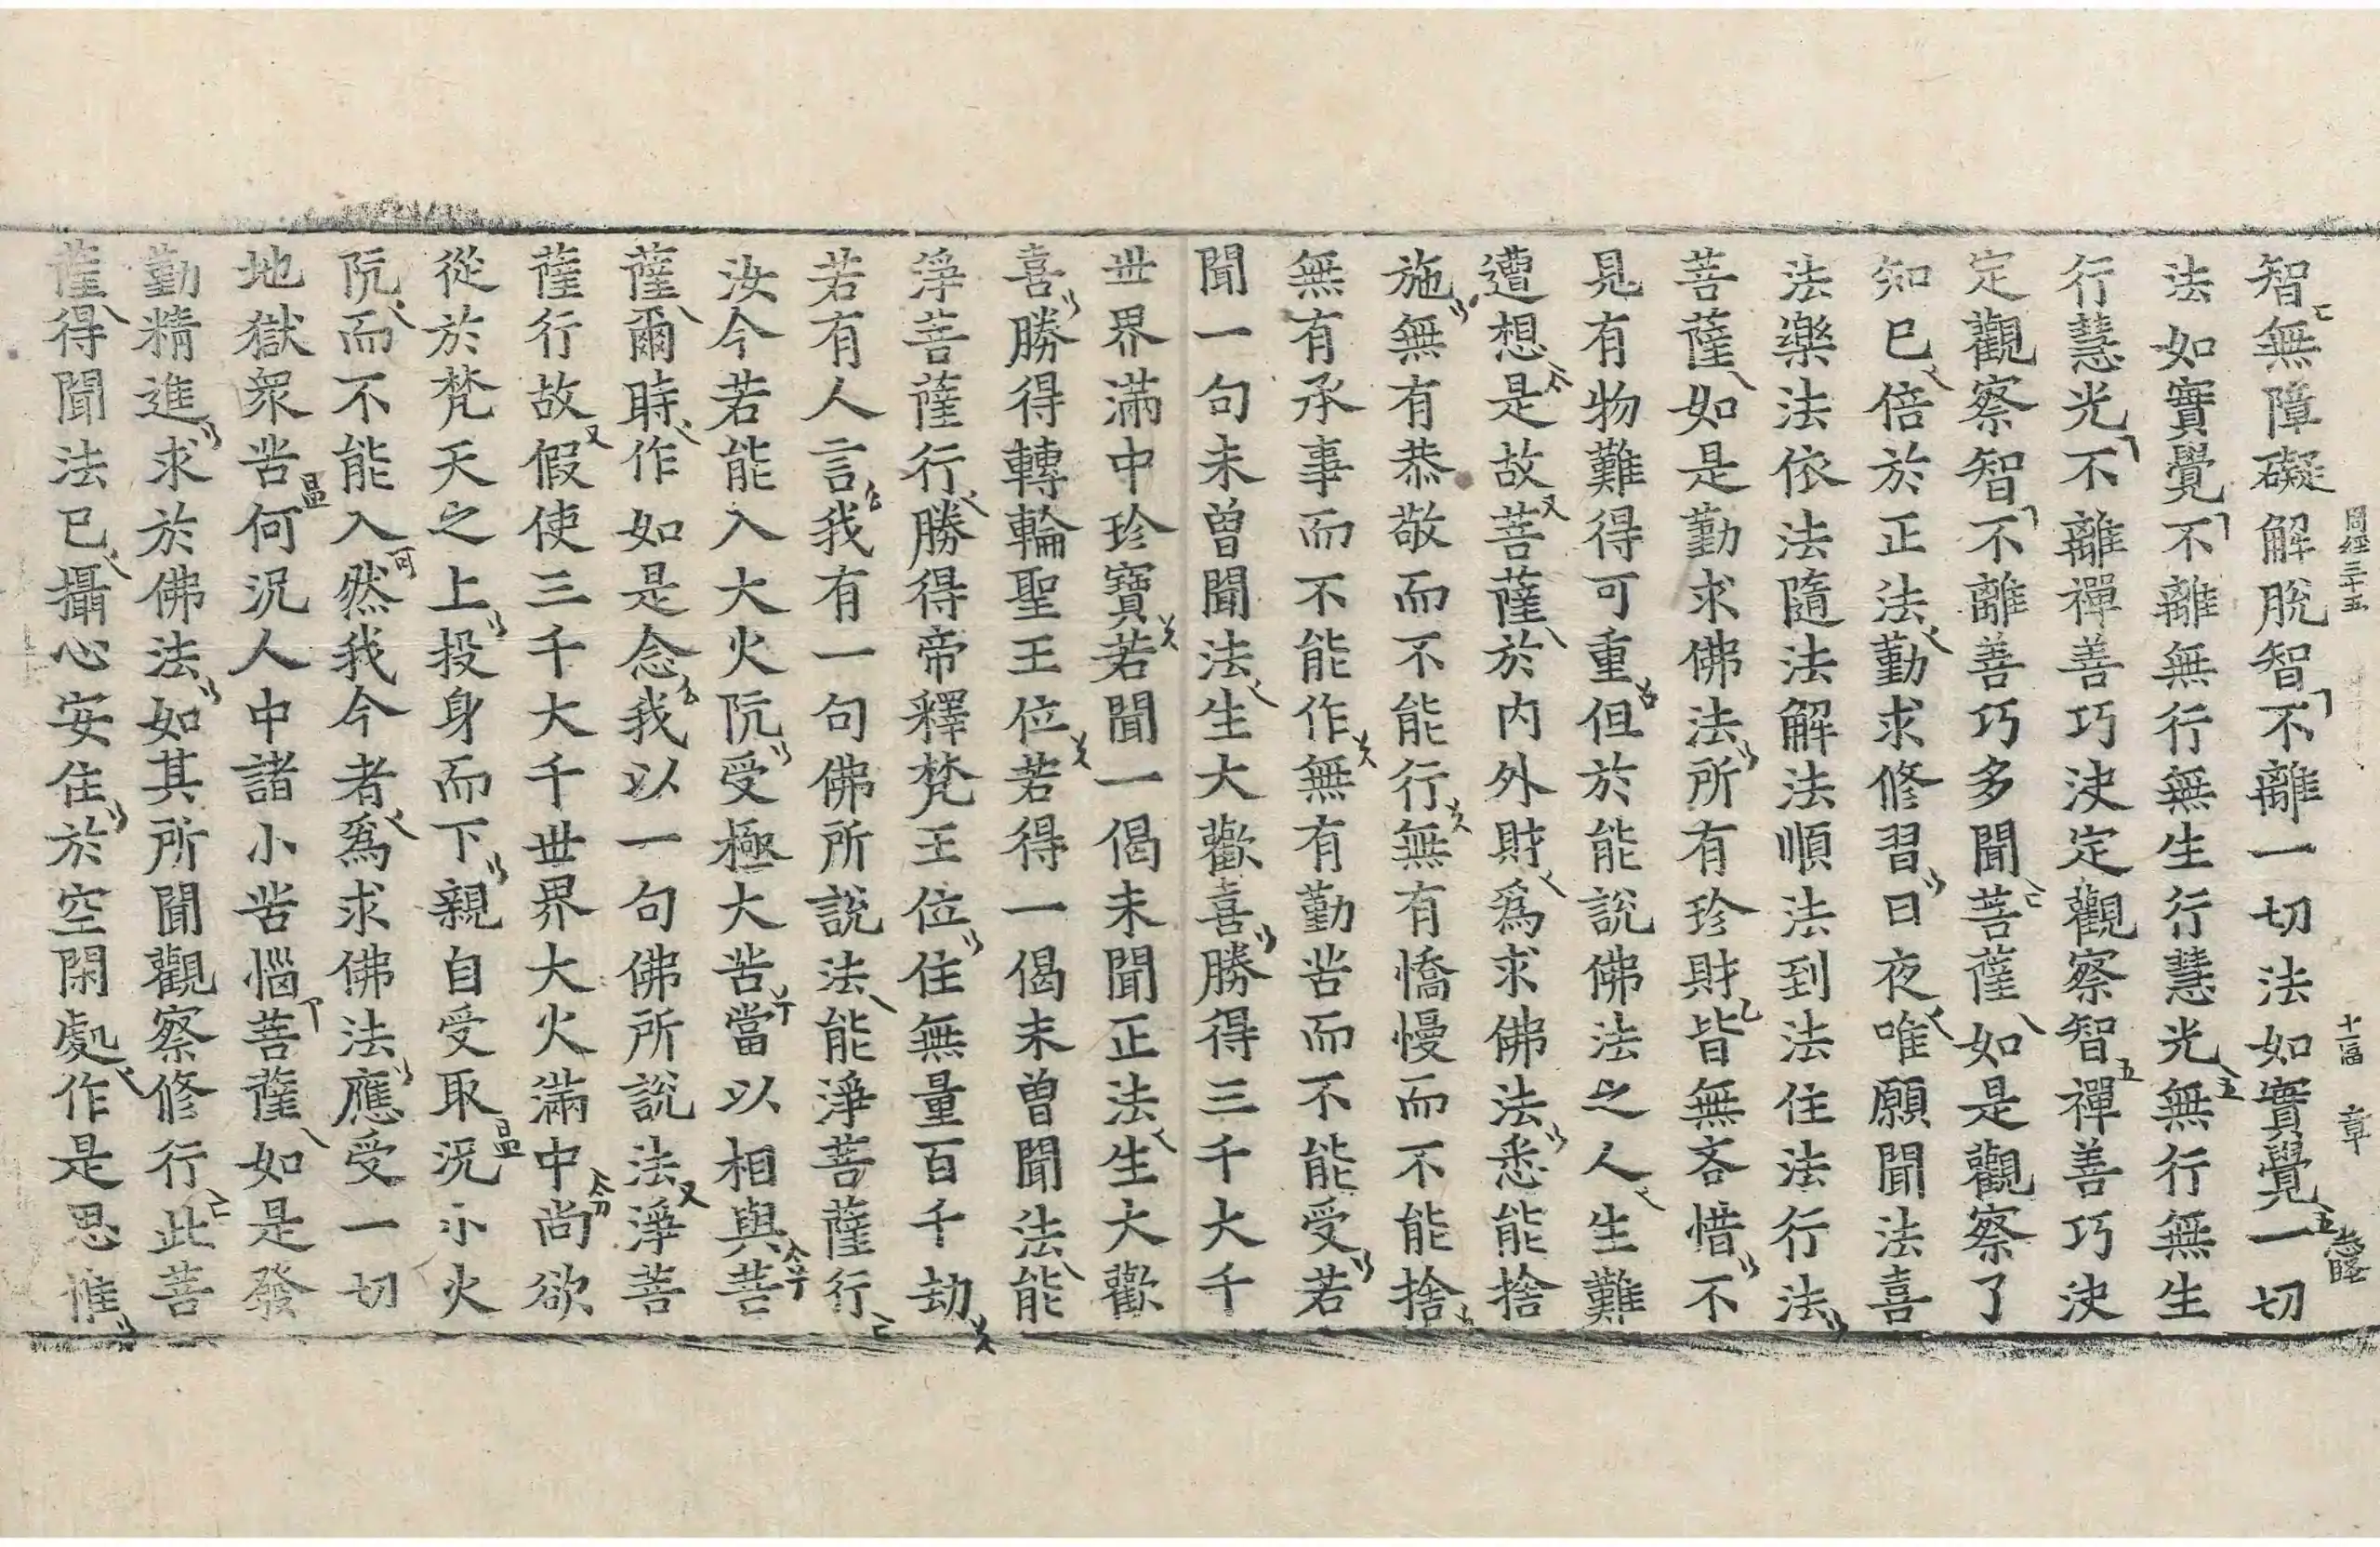 周經三十五　十一　冨　章
智無障礙解脫智不離一切法如實覺一切
法如實覺不離無行無生行慧光無行無生
行慧光不離禪善巧決定觀察智禪善巧決
定觀察智不離善巧多聞菩薩如是觀察了
知已倍於正法勤求修習日夜唯願聞法喜
法樂法依法隨法解法順法到法住法行法
菩薩如是勤求佛法所有珍財皆無吝惜不
見有物難得可重但於能說佛法之人生難
遭想是故菩薩於內外財爲求佛法悉能捨
施無有恭敬而不能行無有憍慢而不能捨
無有承事而不能作無有勤苦而不能受若
聞一句未曾聞法生大歡喜勝得三千大千
世界滿中珍寶若聞一偈未聞正法生大歡
喜勝得轉輪聖王位若得一偈未曾聞法能
淨菩薩行勝得帝釋梵王位住無量百千劫
若有人言我有一句佛所說法能淨菩薩行
汝今若能入大火阬受極大苦當以相與菩
薩爾時作如是念我以一句佛所說法淨菩
薩行故假使三千大千世界大火滿中尚欲
從於梵天之上投身而下親自受取況小火
阬而不能入然我今者爲求佛法應受一切
地獄衆苦何況人中諸小苦惱菩薩如是發
勤精進求於佛法如其所聞觀察修行此菩
薩得聞法已攝心安住於空閑處作是思惟